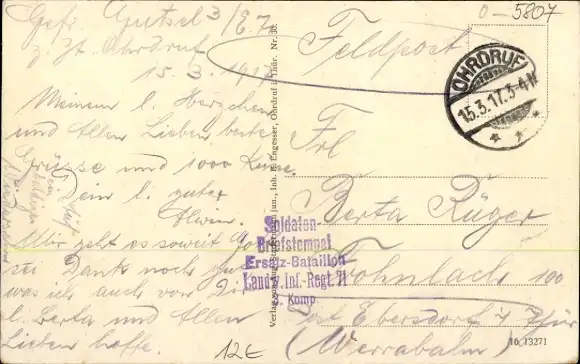 o-5807
Gefr. Gutsel 3/E.71
z. Zt. Ohrdruf
15. 3. 1917
Meinem l. Herzchen
und Allen Lieben beste
Grüsse und 1000 Küsse.
Dein l. guter
Alwin.
Mir geht es soweit
sei Dank noch gut
was ich auch von Dir
l. Berta und Allen
Lieben hoffe.
Feldpost
OHRDRUF
15.3.17.3-4N
Frl
Berta Rüger
Fohnbach 100
Post Ebersdorf
(Werrabahn)
Soldaten-
Briefstempel
Ersatz-Bataillon
Landw. Inf.-Regt. 71
Komp.
jun., Inh. F. Engesser, Ohrdruf i. Thür. Nr. 39.
16 13271
12€